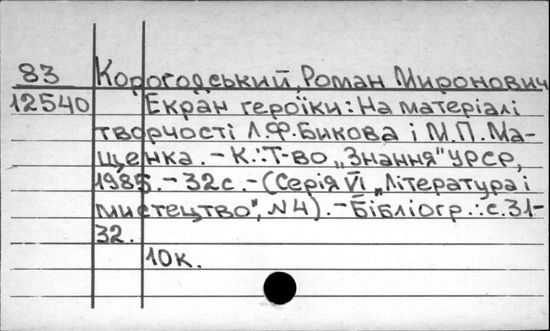 83 Корогодський, Роман Миронович
12540 Екран героїки: На матеріалі
творчості Л.Ф.Бикова і М.П.Ма-
щенка. – К.: Т-во „Знання" УРСР,
1985. – 32с. – (Серія VI „Література і
мистецтво", №4). – Бібліогр.: с.31-
32.
10к.